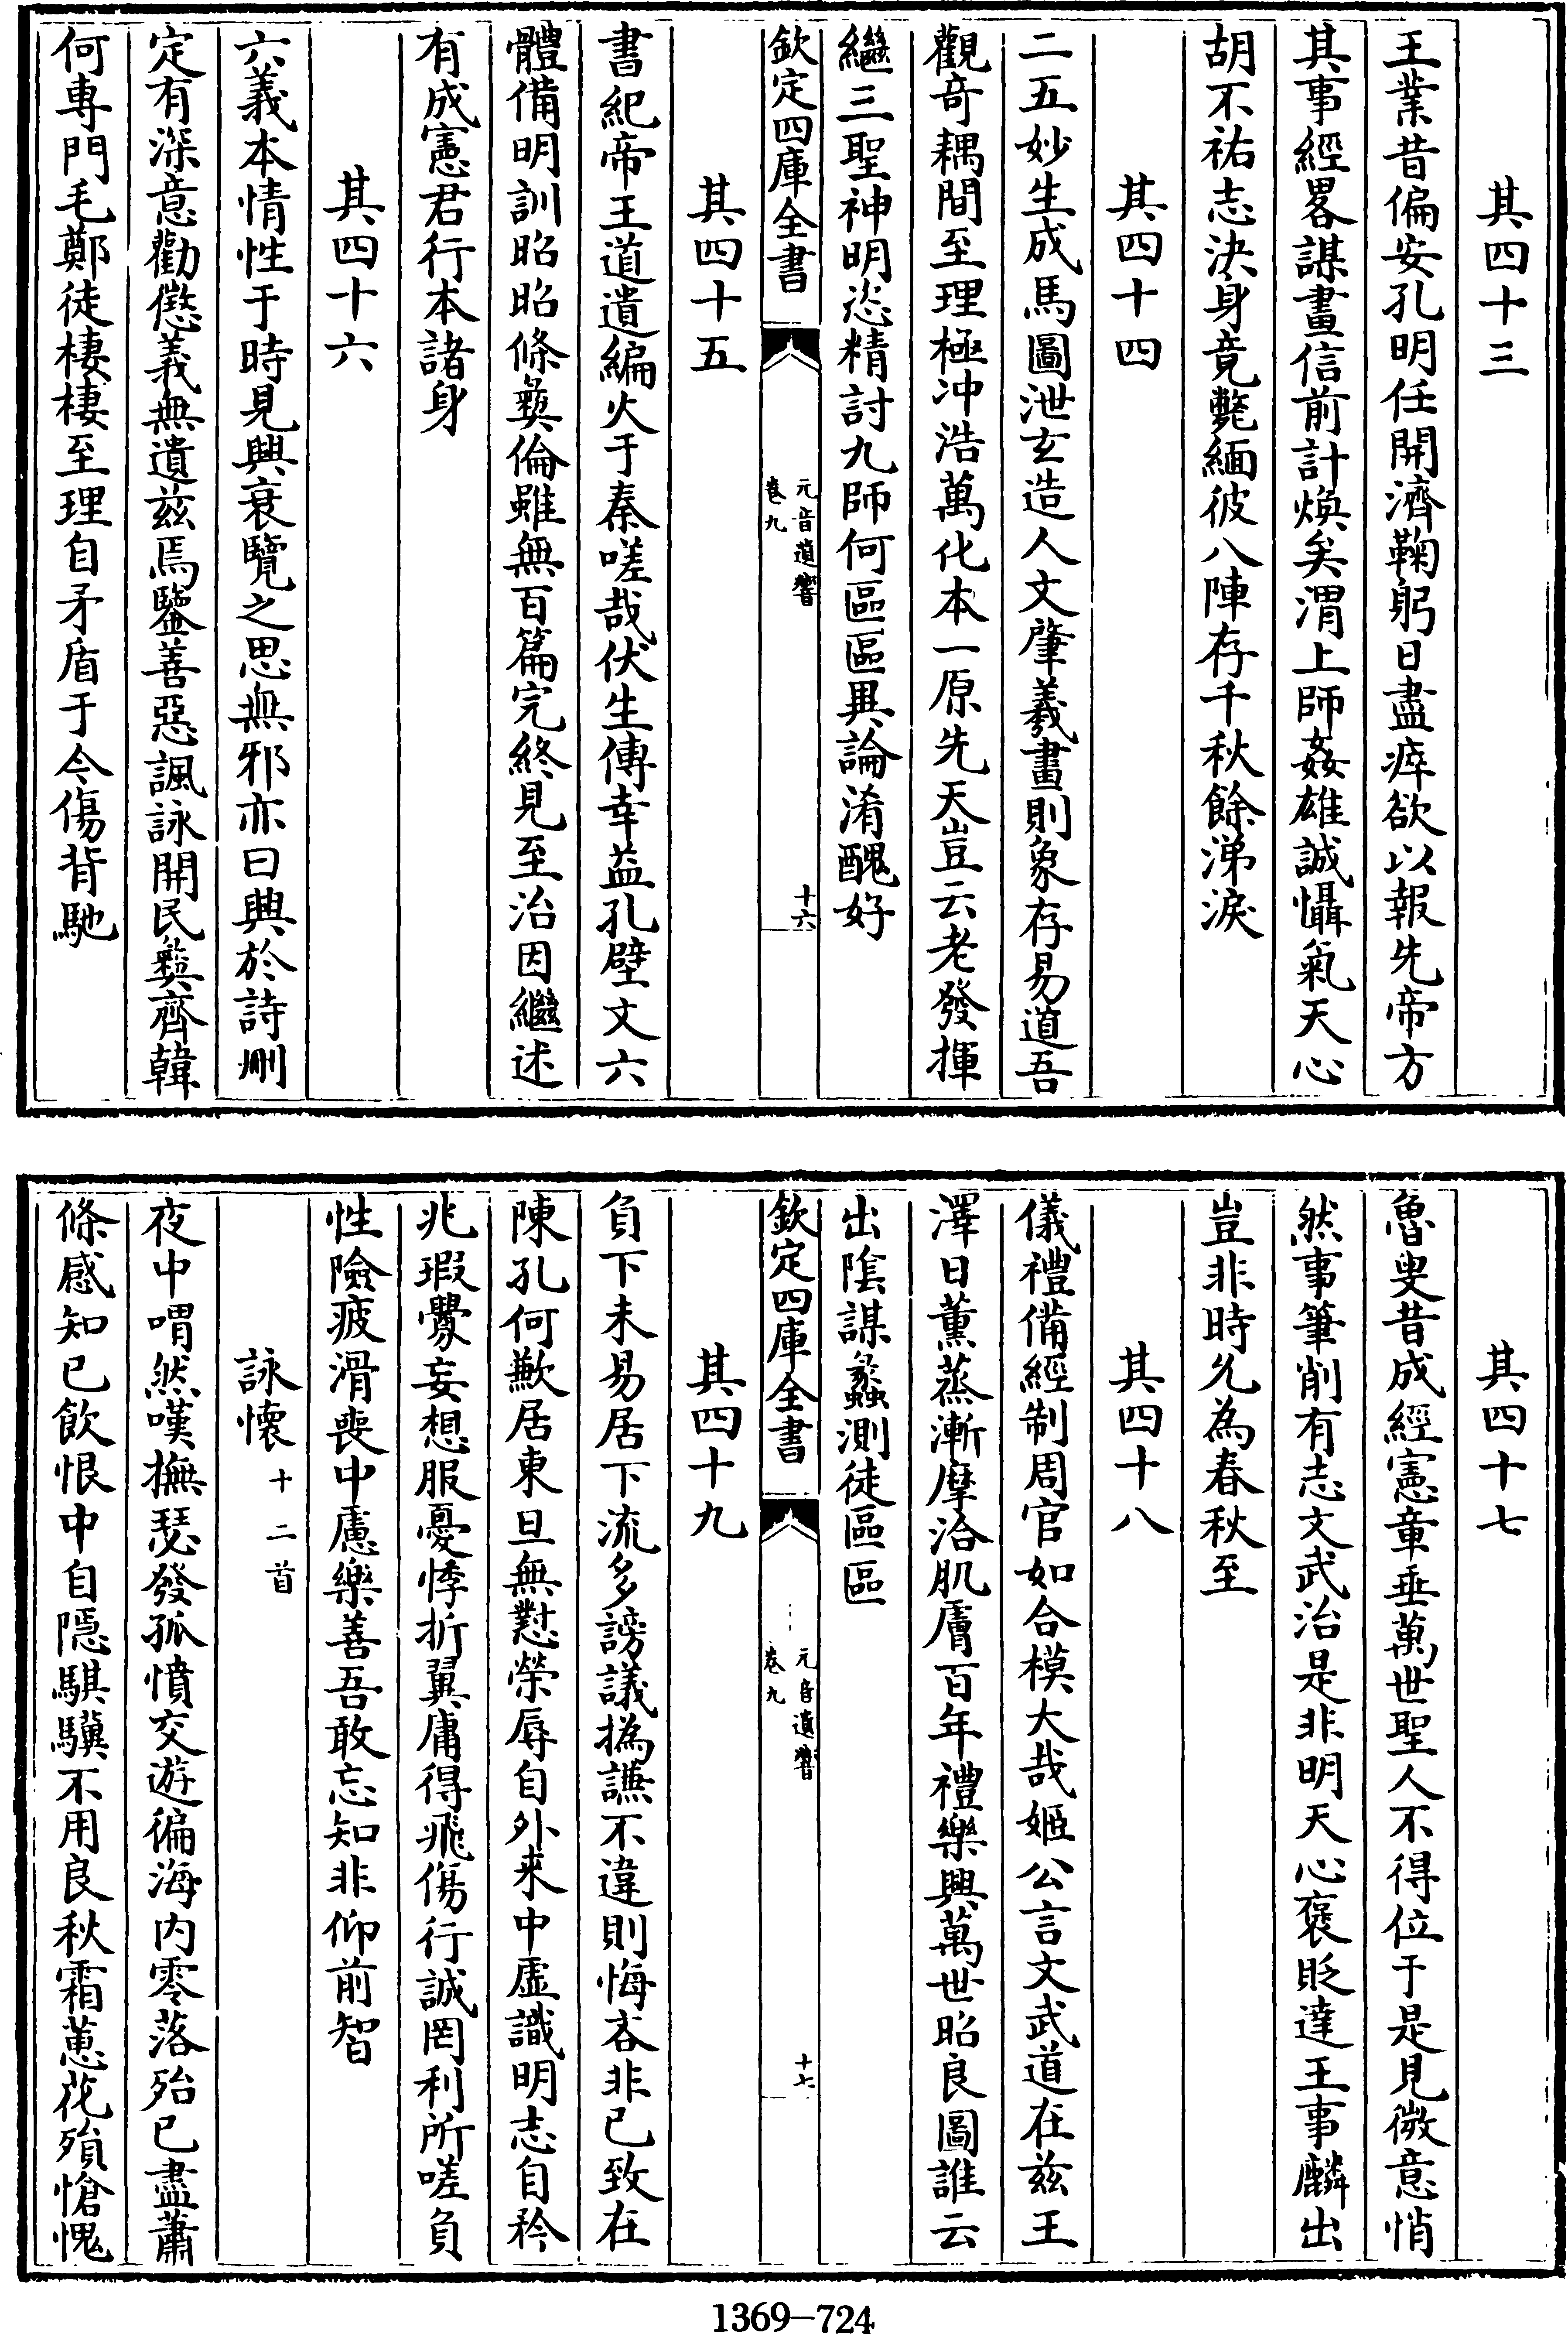 其四十三
王業昔偏安孔明任開濟鞠躬日盡瘁欲以報先帝方
其事經畧謀畫信前計煥矣渭上師姦雄誠懾氣天心
胡不祐志決身竟斃緬彼八陣存千秋餘涕淚
其四十四
二五妙生成馬圖泄玄造人文肇羲畫則象存易道吾
觀竒耦間至理極冲浩萬化本一原先天豈云老發揮
繼三聖神明恣精討九師何區區異論淆醜好
欽定四庫全書
元音遺響
卷九
十六
其四十五
書紀帝王道遺編火于秦嗟哉伏生傳幸益孔壁文六
體備明訓昭昭條彝倫雖無百篇完終見至治因繼述
有成憲君行本諸身
其四十六
六義本情性于時見興衰覽之思無邪亦曰興於詩刪
定有深意勸懲義無遺兹焉鑒善惡諷詠開民彝齊韓
何專門毛鄭徒棲棲至理自矛盾于今傷背馳
其四十七
魯叟昔成經憲章垂萬世聖人不得位于是見微意悄
然事筆削有志文武治是非明天心褒貶達王事麟出
豈非時允為春秋至
其四十八
儀禮備經制周官如合模大哉姬公言文武道在兹王
澤日薰蒸漸摩洽肌膚百年禮樂興萬世昭良圖誰云
出陰謀蠡測徒區區
欽定四庫全書
元音遺響
卷九
十七
其四十九
負下未易居下流多謗議撝謙不違則悔吝非已致在
陳孔何歉居東旦無懟榮辱自外来中虛識明志自矜
兆瑕釁妄想服憂悸折翼庸得飛傷行誠罔利所嗟負
性險疲滑喪中慮樂善吾敢忘知非仰前智
詠懷十二首
夜中喟然嘆撫瑟發孤憤交遊徧海内零落殆已盡蕭
條感知已飲恨中自隱騏驥不用良秋霜蕙花殞愴愧
1369-724